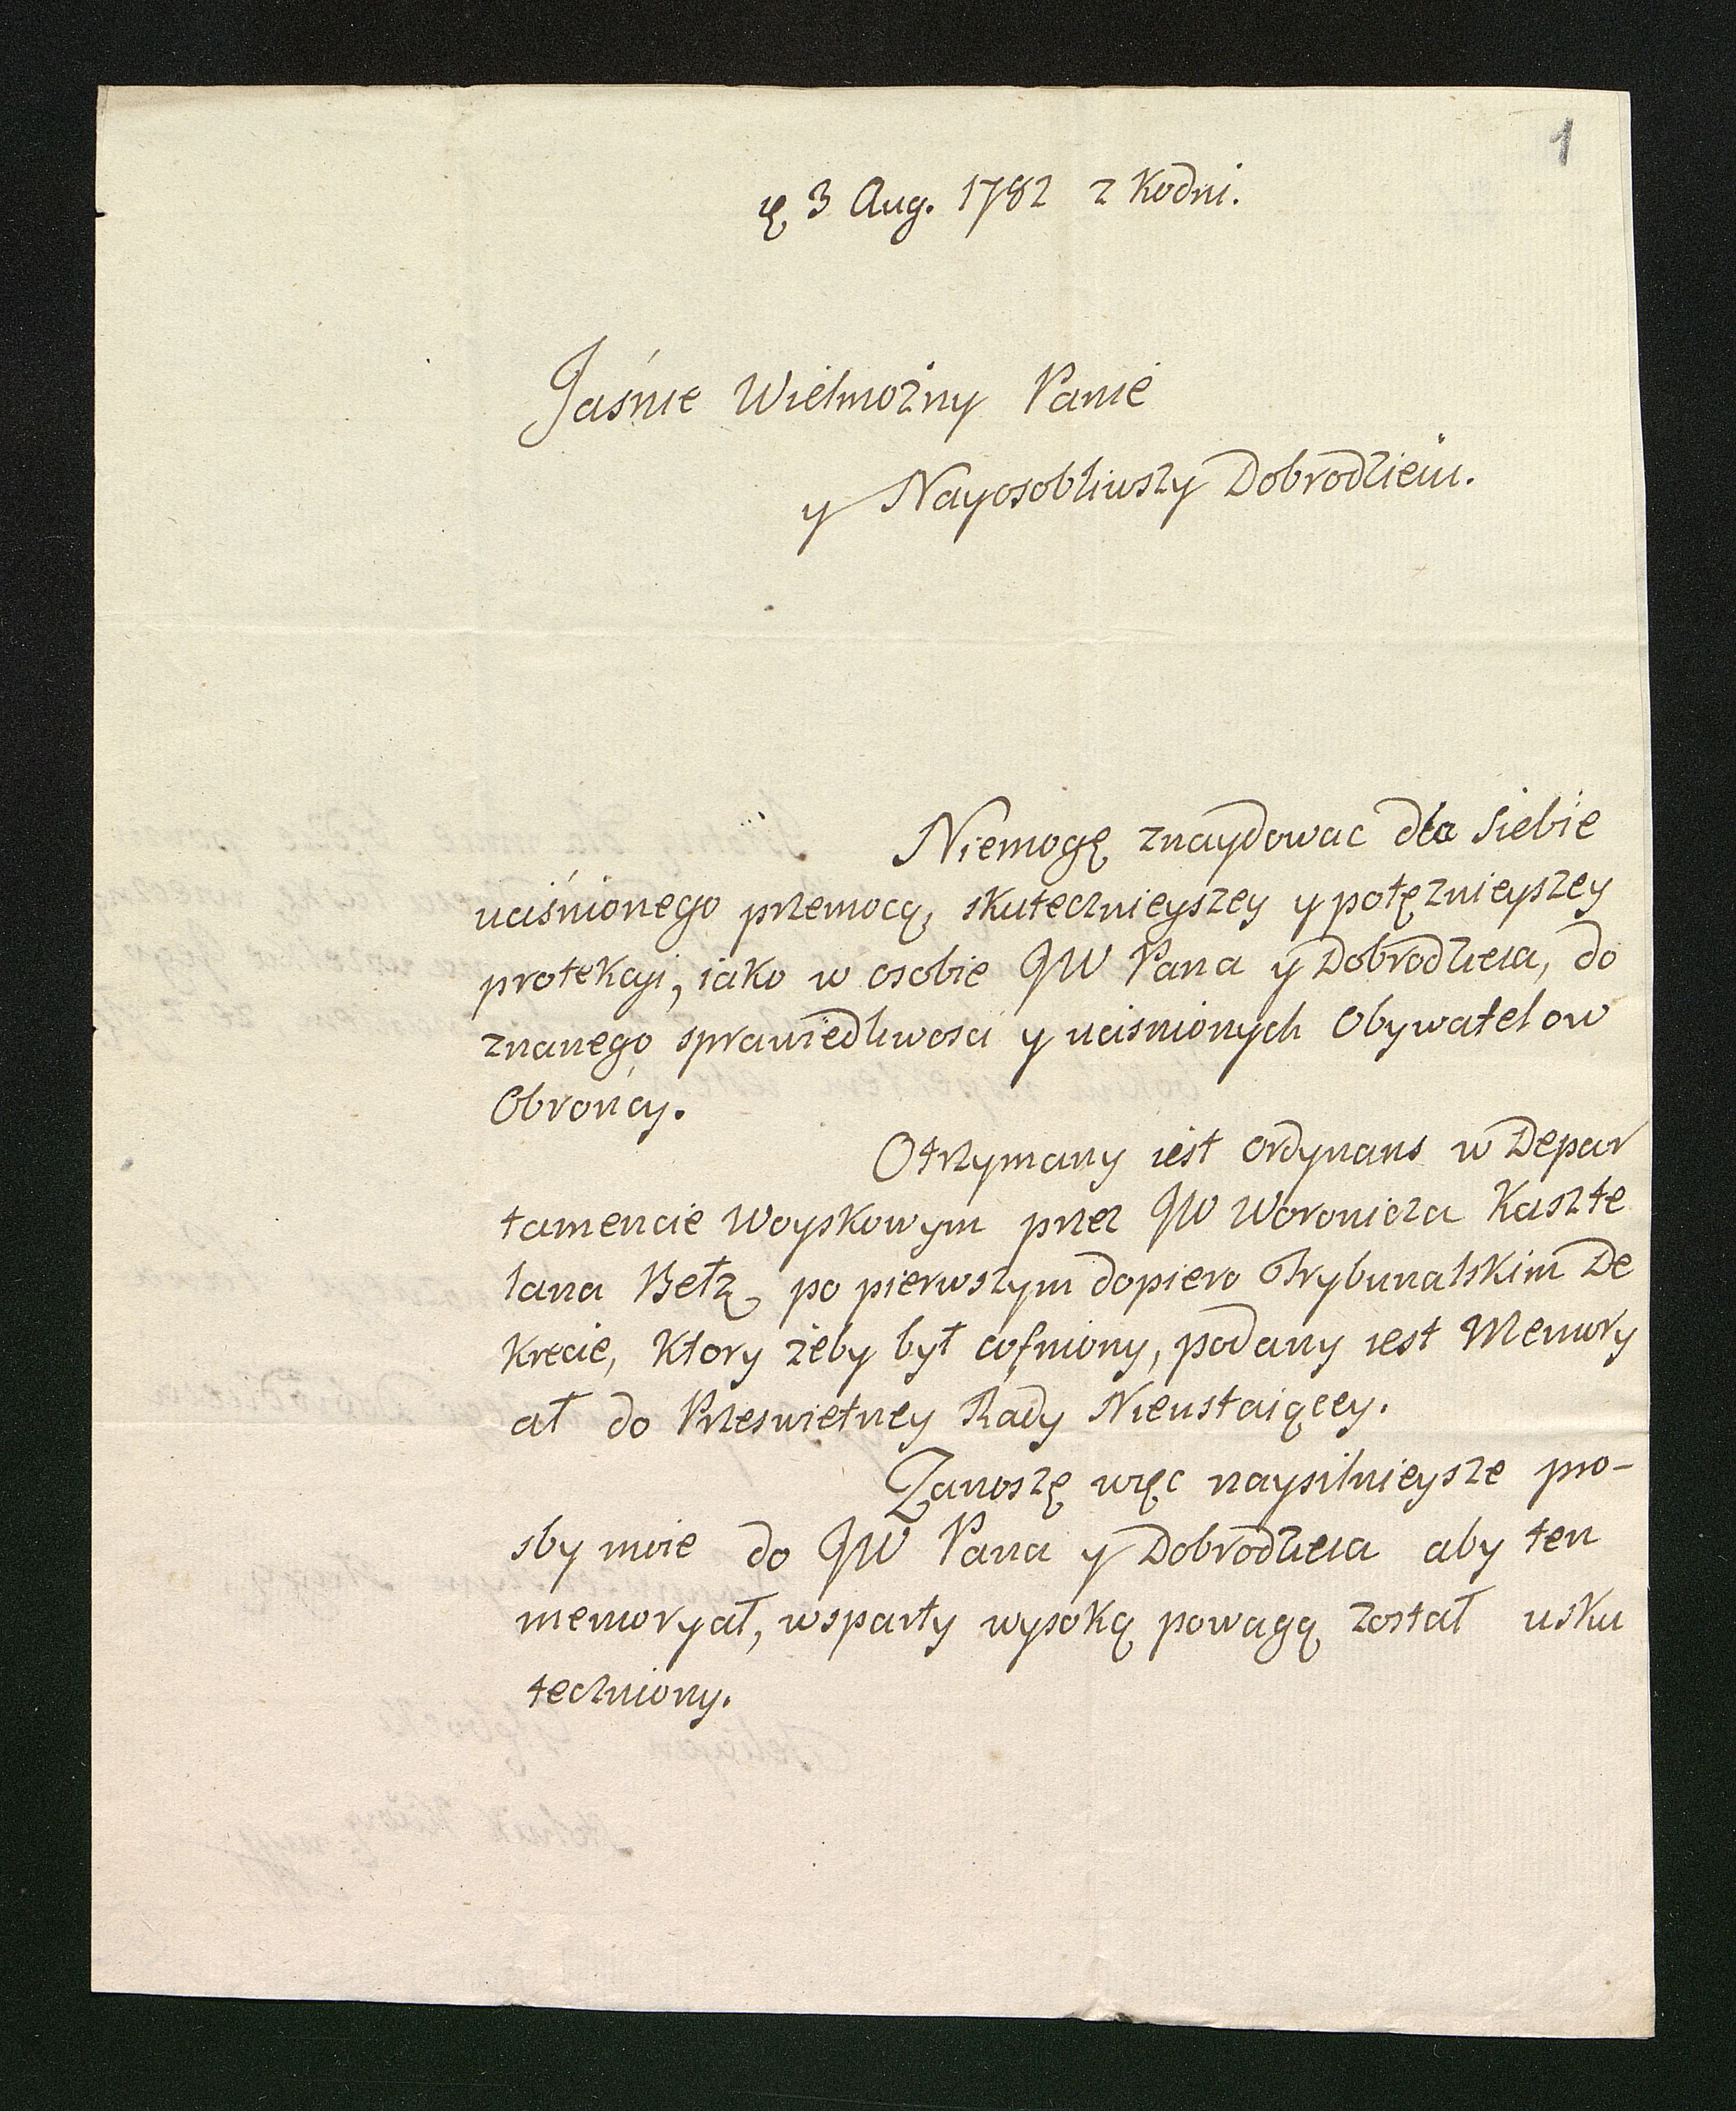 1
3 Aug. 1782 z Kodni.
Jaśnie Wielmożny Panie
y Nayosobliwszy Dobrodzieiu.
Niemogę znaydowac dla siebie
uciśnionego przemocą, skutecznieyszey y potęznieyszey
protekcyi, iako w osobie JW Pana y Dobrodzieia, do
znanego sprawiedliwosci y ucisnionych Obywatelow
Obrońcy.
Otrzymany iest ordynans w Depar
tamencie Woyskowym przez JW Woronicza Kaszte
lana Bełz, po pierwszym dopiero Trybunalskim De
krecie, Ktory żeby był cofniony, podany iest Memory
ał do Przeswietney Rady Nieustaiącey.
Zanoszę więc naysilnieysze pro-
sby moie do JW Pana y Dobrodzieia aby ten
memoryał, wsparty wysoką powagą został usku
teczniony.